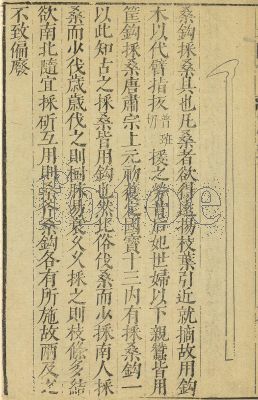 桑鈎採桑具也凡桑者欲得遠揚枝葉引近就摘故用鈎
木以代臂指扳普班切援之勞昔后妃世婦以下親蠶皆用
筐鈎採桑唐肅宗上元初獲定國寶十三內有採桑鈎一
以此知古之採桑皆用鈎也然北俗伐桑而少採南人採
桑而少伐歲歲伐之則樹脉易衰久久採之則枝條多結
欲南北隨宜採斫互用則桑鈎各有所施故兩及之
不致偏廢